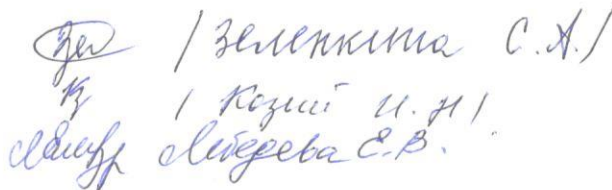 / Зеленкина С. А. /
/ Козий И. Н /
Лебедева Е. В.